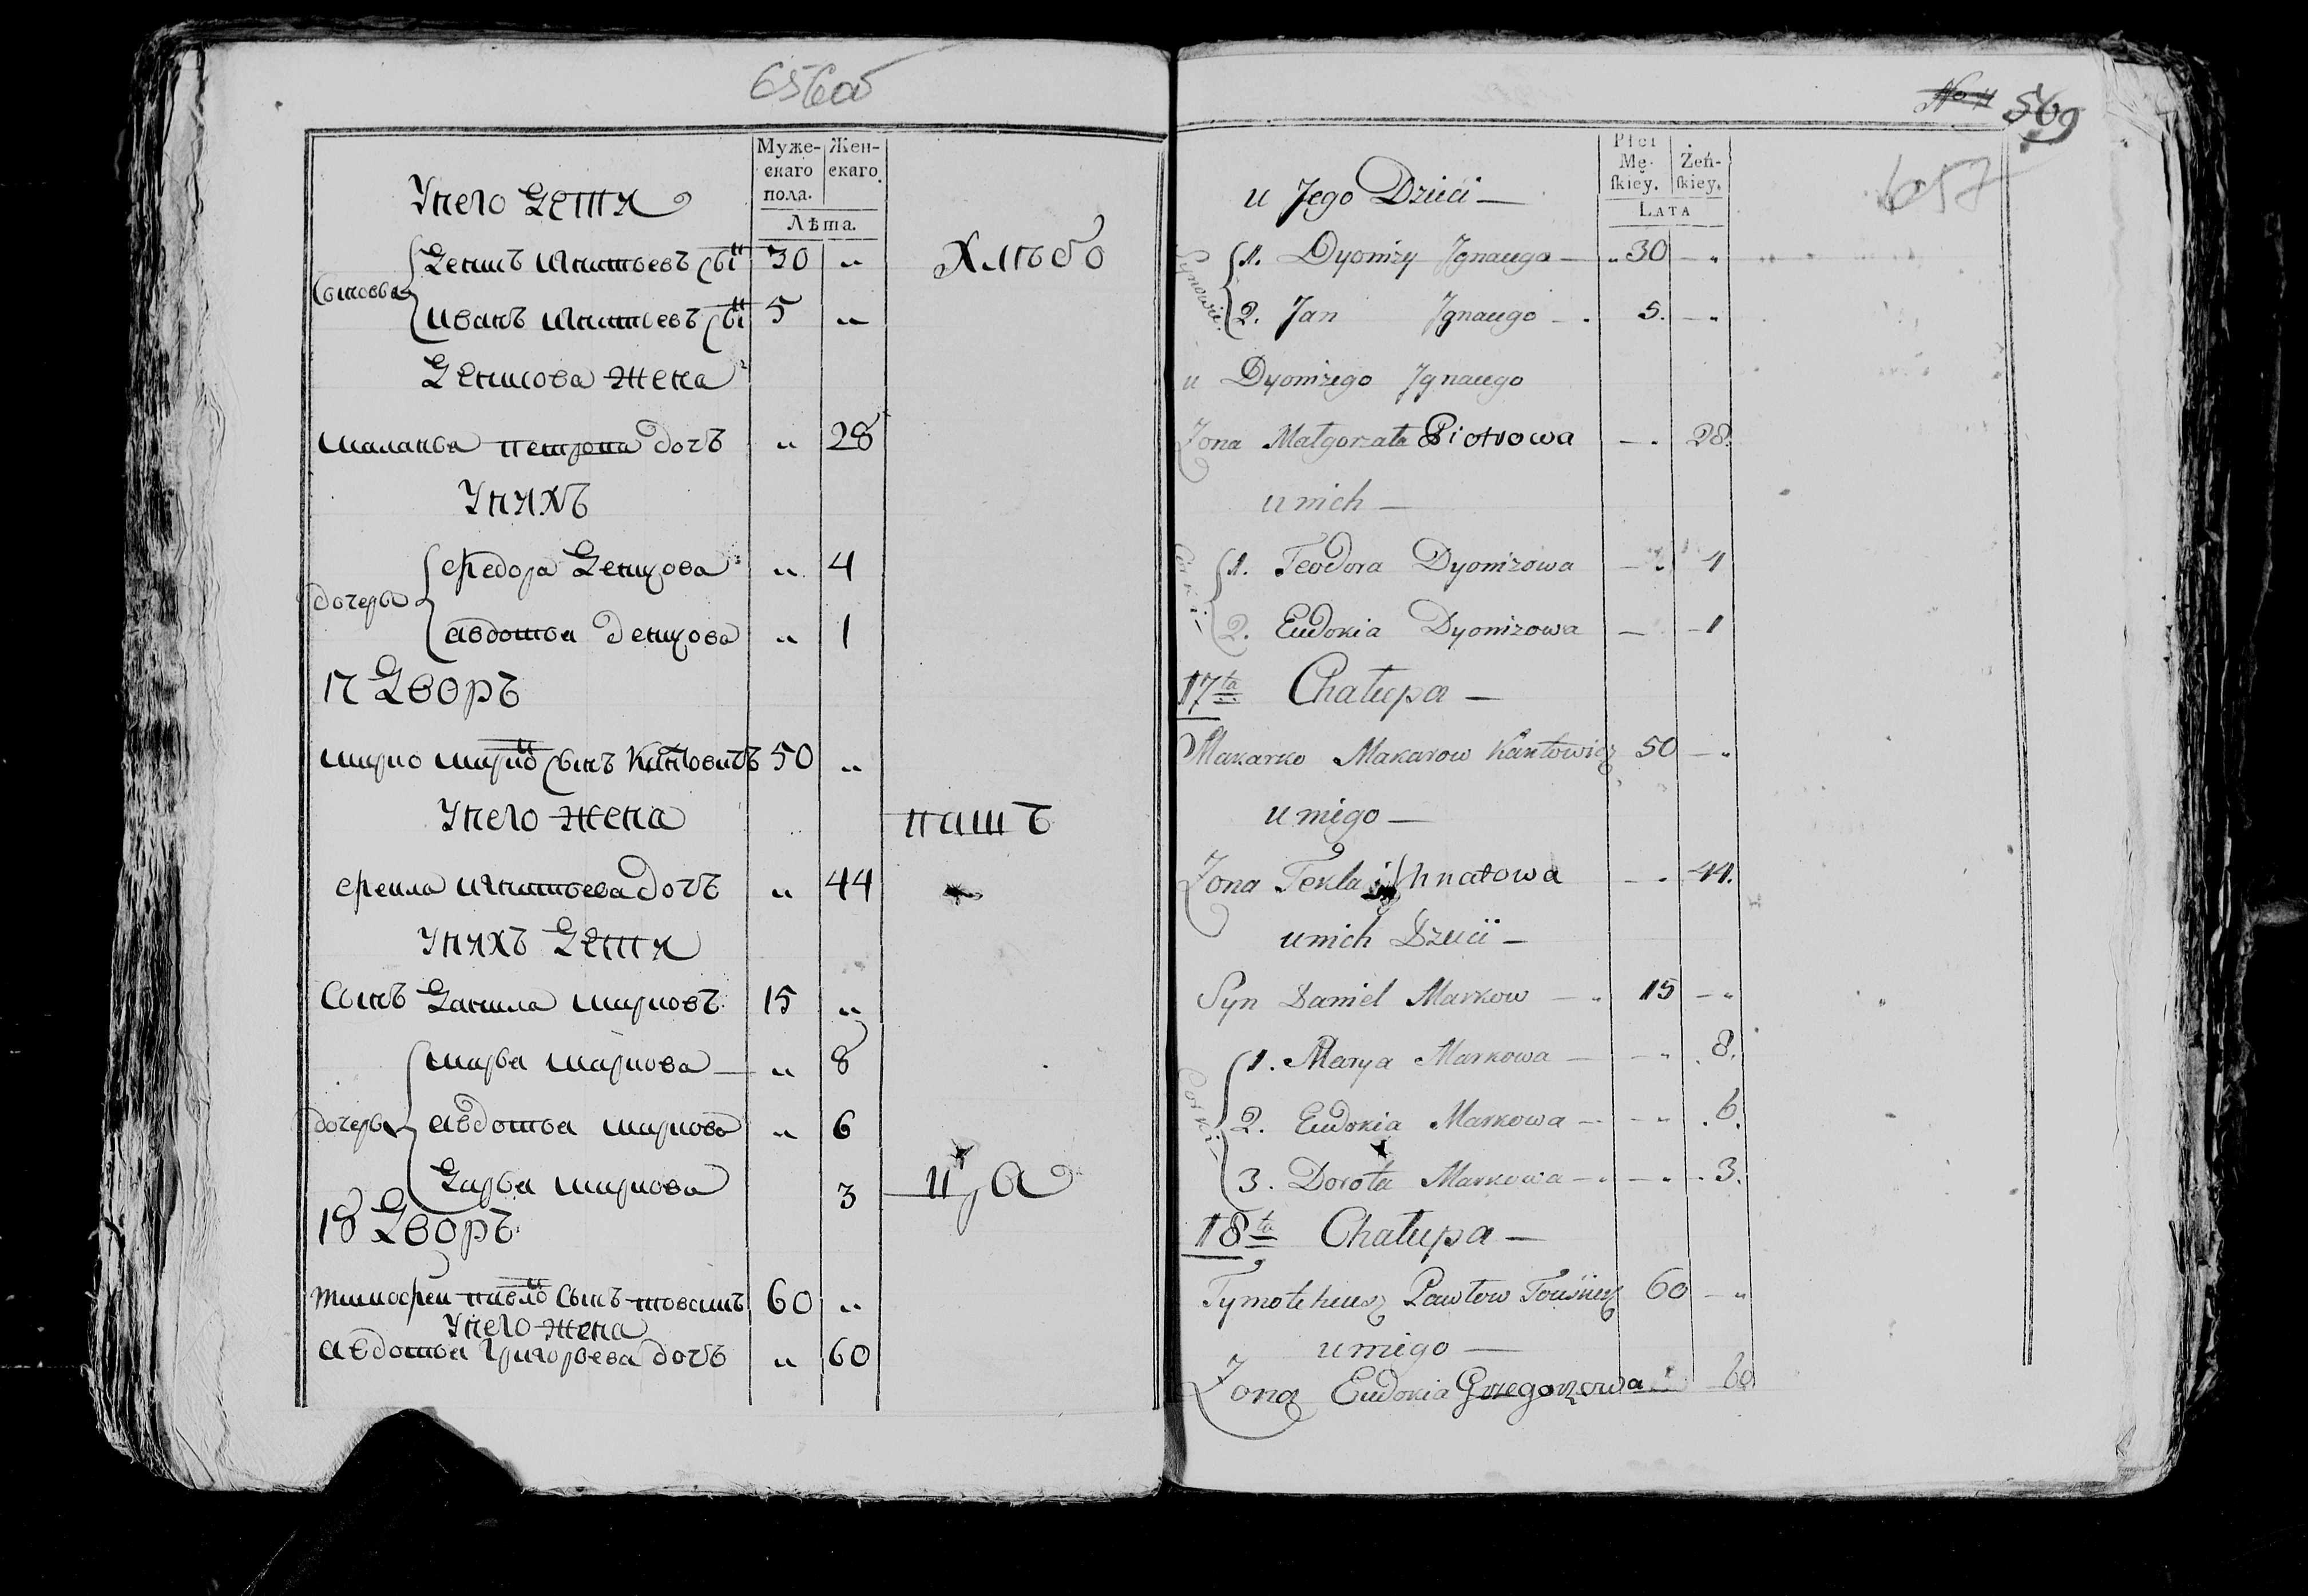 656об
Муже-
скаго
пола.
Жен-
скаго
Лѣта.
Унего Дети
Сыновья
Денисъ Игнатьевъ сынъ 30 "
Иванъ Игнатьевъ сынъ 5 "
Денисова жена
маланья петрова дочъ " 28
Унихъ
дочерьи
федора Денисова " 4
авдотьи денисова " 1
17 Дворъ
марко марко сынъ 50 "
Унего жена
фекла игнатьева дочъ " 44
Унихъ Дети
Сынъ Данила марковъ 15 "
дочерьи
марьи маркова " 8
авдотьи маркова " 6
Дарьи маркова 3
18 Дворъ
тимофеи павло сынъ 60 "
Унего жена
авдотьи григорьева дочъ " 60
Хлѣбо
пашъ
No 11
569
657
Płci
Mę-
skiey.
Żeń-
skiey.
LATA
u Jego Dzieci —
Synowie.
1. Dyonizy Jgnacego — " 30 — "
2. Jan Jgnacego — . 5. — "
u Dyonizego Jgnacego
Żona Małgorzata Piotrowa — . 28.
u nich —
Corki
1. Teodora Dyonizowa — . 4
2. Eudokia Dyonizowa — — 1
17ta Chałupa —
Makarko Makarow Kantowicz 50 — "
u niego —
Żona Tekla ihnatowa — . 44.
u nich Dzieci —
Syn Daniel Markow — " 15 — "
Corki
1. Marya Markowa — — " . 8.
2. Eudokia Markowa — — " . 6.
3. Dorota Markowa — . — . — . 3.
18ta Chałupa —
Tymoteheusz Pawłow 60 — "
u niego —
Żona Eudokia Grzegorzowa 60